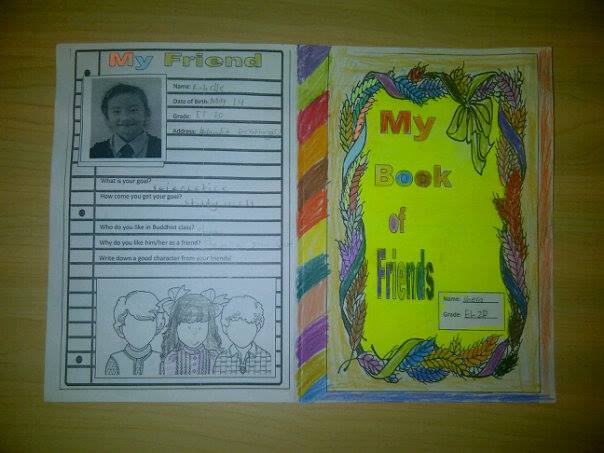 My Friend
Name:
Date of Birth: May 14
Grade:
Address:
What is your goal?
How come you get your goal?
study
Who do you like in Buddhist class?
Why do you like him/her as a friend?
Write down a good character from your friends!
My
Book
of
Friends
Name:
Grade: